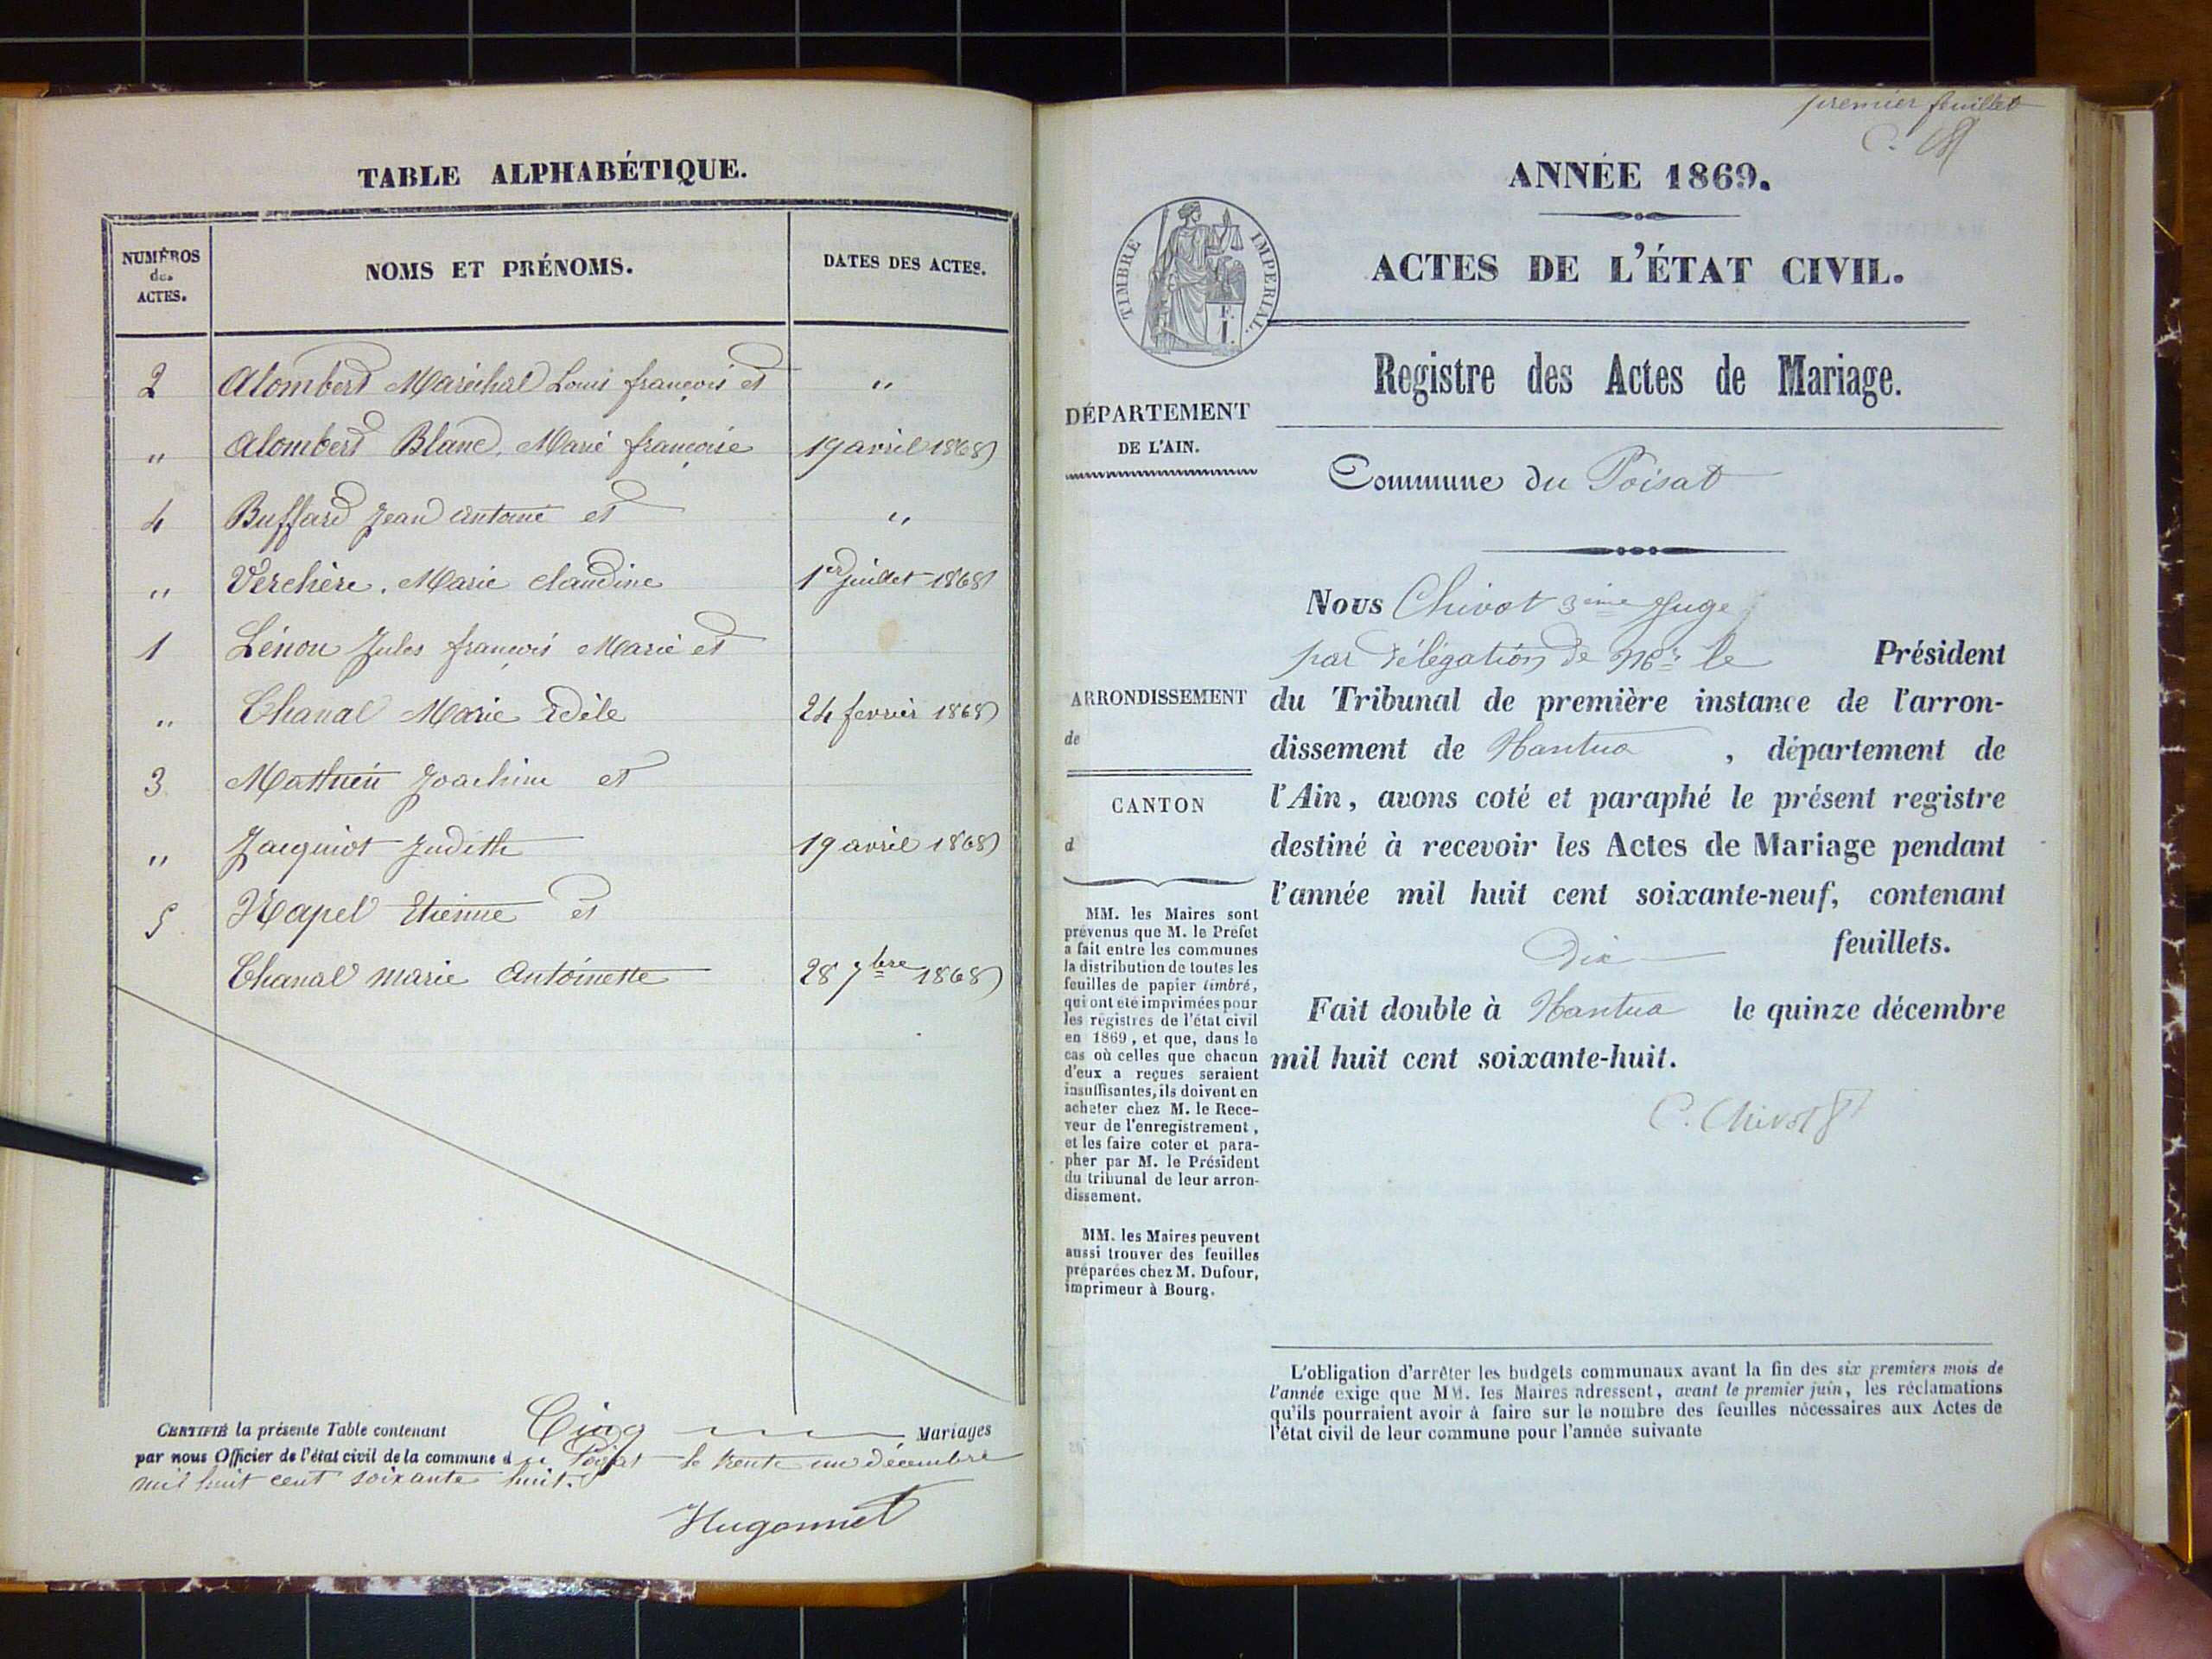 TABLE ALPHABÉTIQUE.
NUMÉROS des ACTES.
NOMS ET PRÉNOMS.
DATES DES ACTES.
2 Alombert Maréchal Louis françois et "
" Alombert Blanc, Marie françoise 19 avril 1868
4 Buffard Jean Antoine et "
" Verchère, Marie Claudine 1er juillet 1868
1 Lénou Jules françois Marie et
" Chanal Marie Adèle 24 fevrier 1868
3 Mathieu Joachim et
" Jacquiot Judith 19 avril 1868
5 Hapel Etienne et
Chanal marie Antoinette 28 7bre 1868
CERTIFIÉ la présente Table contenant Cinq Mariages
par nous Officier de l'état civil de la commune du Poizat le trente un décembre
mil huit cent soixante huit.
Hugonnet
premier feuillet
ANNÉE 1869.
TIMBRE IMPERIAL.
F.
1.
ACTES DE L'ÉTAT CIVIL.
Registre des Actes de Mariage.
DÉPARTEMENT
DE L'AIN.
Commune du Poisat
Nous Chivot 3ème Juge
par délégation de Mr le Président
ARRONDISSEMENT
de
CANTON
d
du Tribunal de première instance de l'arron-
dissement de Nantua , département de
l'Ain, avons coté et paraphé le présent registre
destiné à recevoir les Actes de Mariage pendant
l'année mil huit cent soixante-neuf, contenant
Dix feuillets.
Fait double à Nantua le quinze décembre
mil huit cent soixante-huit.
C. Chivot
MM. les Maires sont
prévenus que M. le Préfet
a fait entre les communes
la distribution de toutes les
feuilles de papier timbré,
qui ont été imprimées pour
les registres de l'état civil
en 1869, et que, dans le
cas où celles que chacun
d'eux a reçues seraient
insuffisantes, ils doivent en
acheter chez M. le Rece-
veur de l'enregistrement,
et les faire coter et para-
pher par M. le Président
du tribunal de leur arron-
dissement.
MM. les Maires peuvent
aussi trouver des feuilles
préparées chez M. Dufour,
imprimeur à Bourg.
L'obligation d'arrêter les budgets communaux avant la fin des six premiers mois de
l'année exige que MM. les Maires adressent, avant le premier juin, les réclamations
qu'ils pourraient avoir à faire sur le nombre des feuilles nécessaires aux Actes de
l'état civil de leur commune pour l'année suivante